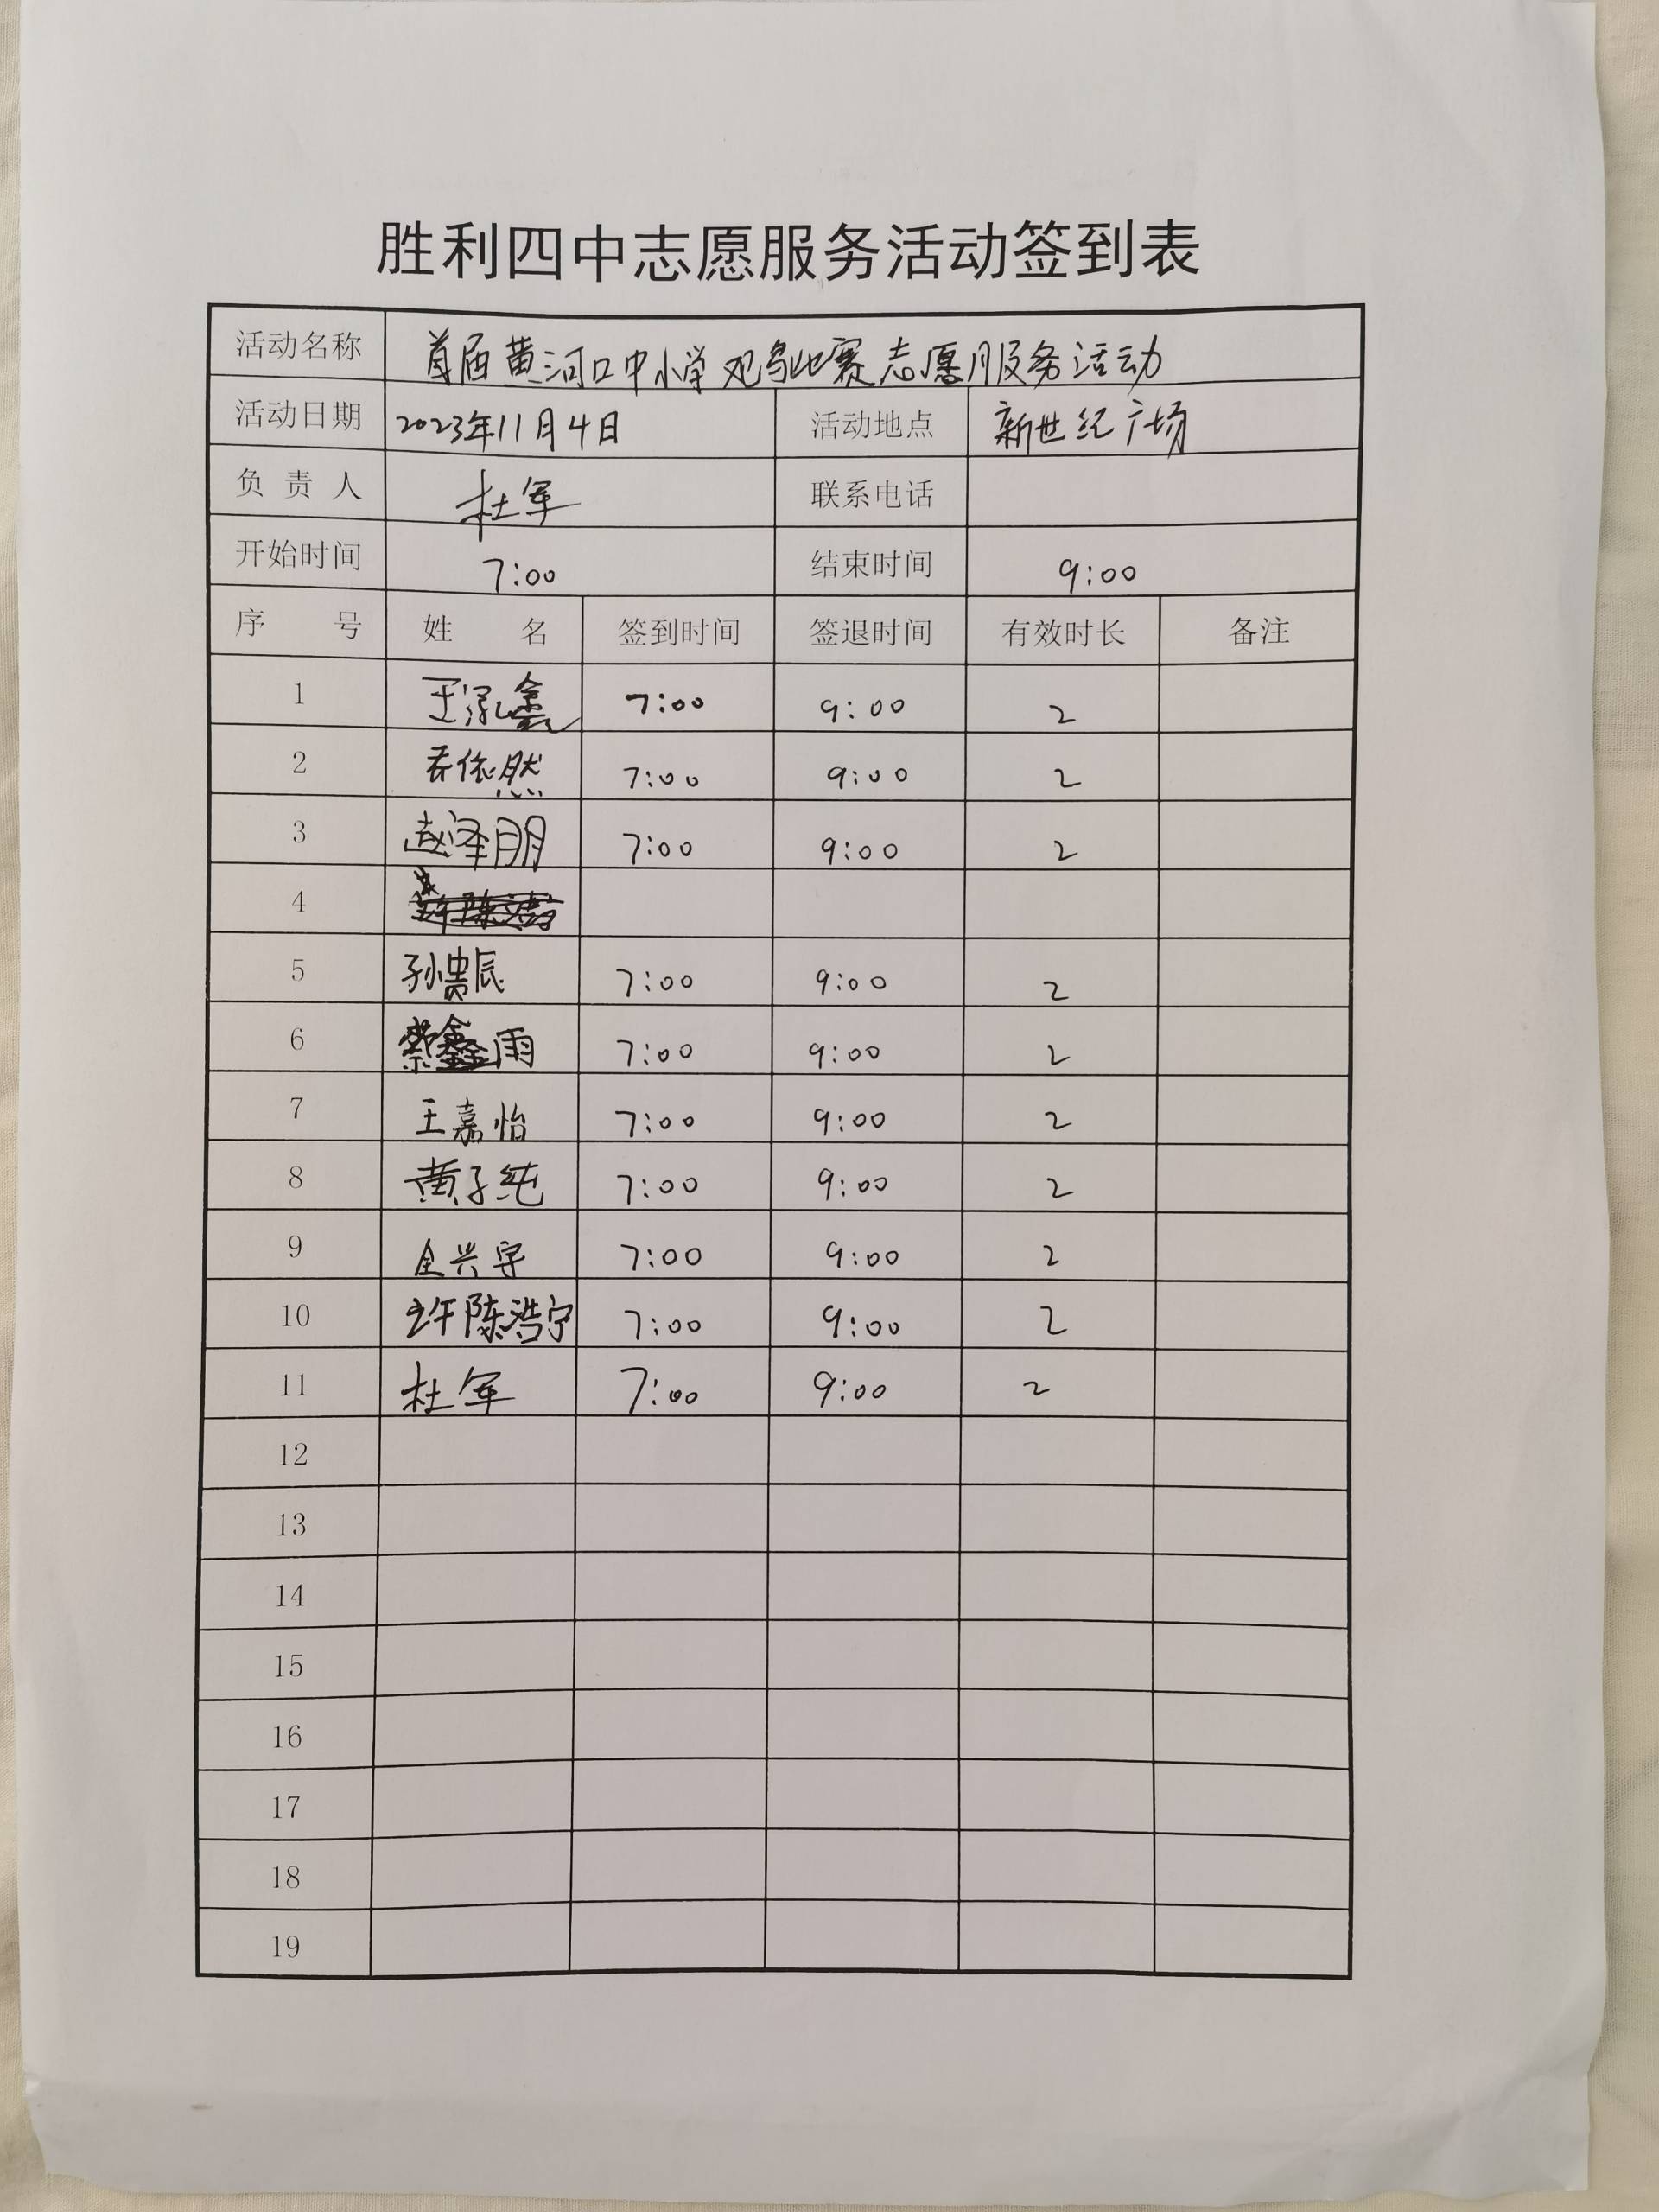 胜利四中志愿服务活动签到表
活动名称 首届黄河口中小学观鸟比赛志愿服务活动
活动日期 2023年11月4日 活动地点 新世纪广场
负责人 杜军 联系电话
开始时间 7:00 结束时间 9:00
序号 姓名 签到时间 签退时间 有效时长 备注
1 王泓鑫 7:00 9:00 2
2 乔依然 7:00 9:00 2
3 赵泽朋 7:00 9:00 2
4
5 孙贵辰 7:00 9:00 2
6 雨 7:00 9:00 2
7 王嘉怡 7:00 9:00 2
8 黄子纯 7:00 9:00 2
9 全兴宇 7:00 9:00 2
10 许陈浩宁 7:00 9:00 2
11 杜军 7:00 9:00 2
12
13
14
15
16
17
18
19